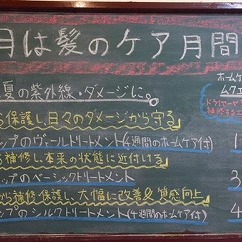 月は髪のケア月間
ホームケ
ムケア
夏の紫外線・ダメージに。
保護し、日々のダメージから守る
ップのヴェールトリートメント(4週間のホームケア付) 1
補修し、本来の状態に近付ける
ップのベーシックトリートメント 3
から補修・保護し、大幅に改善&質感向上
ップのシルクトリートメント(4週間のホームケア付) 4